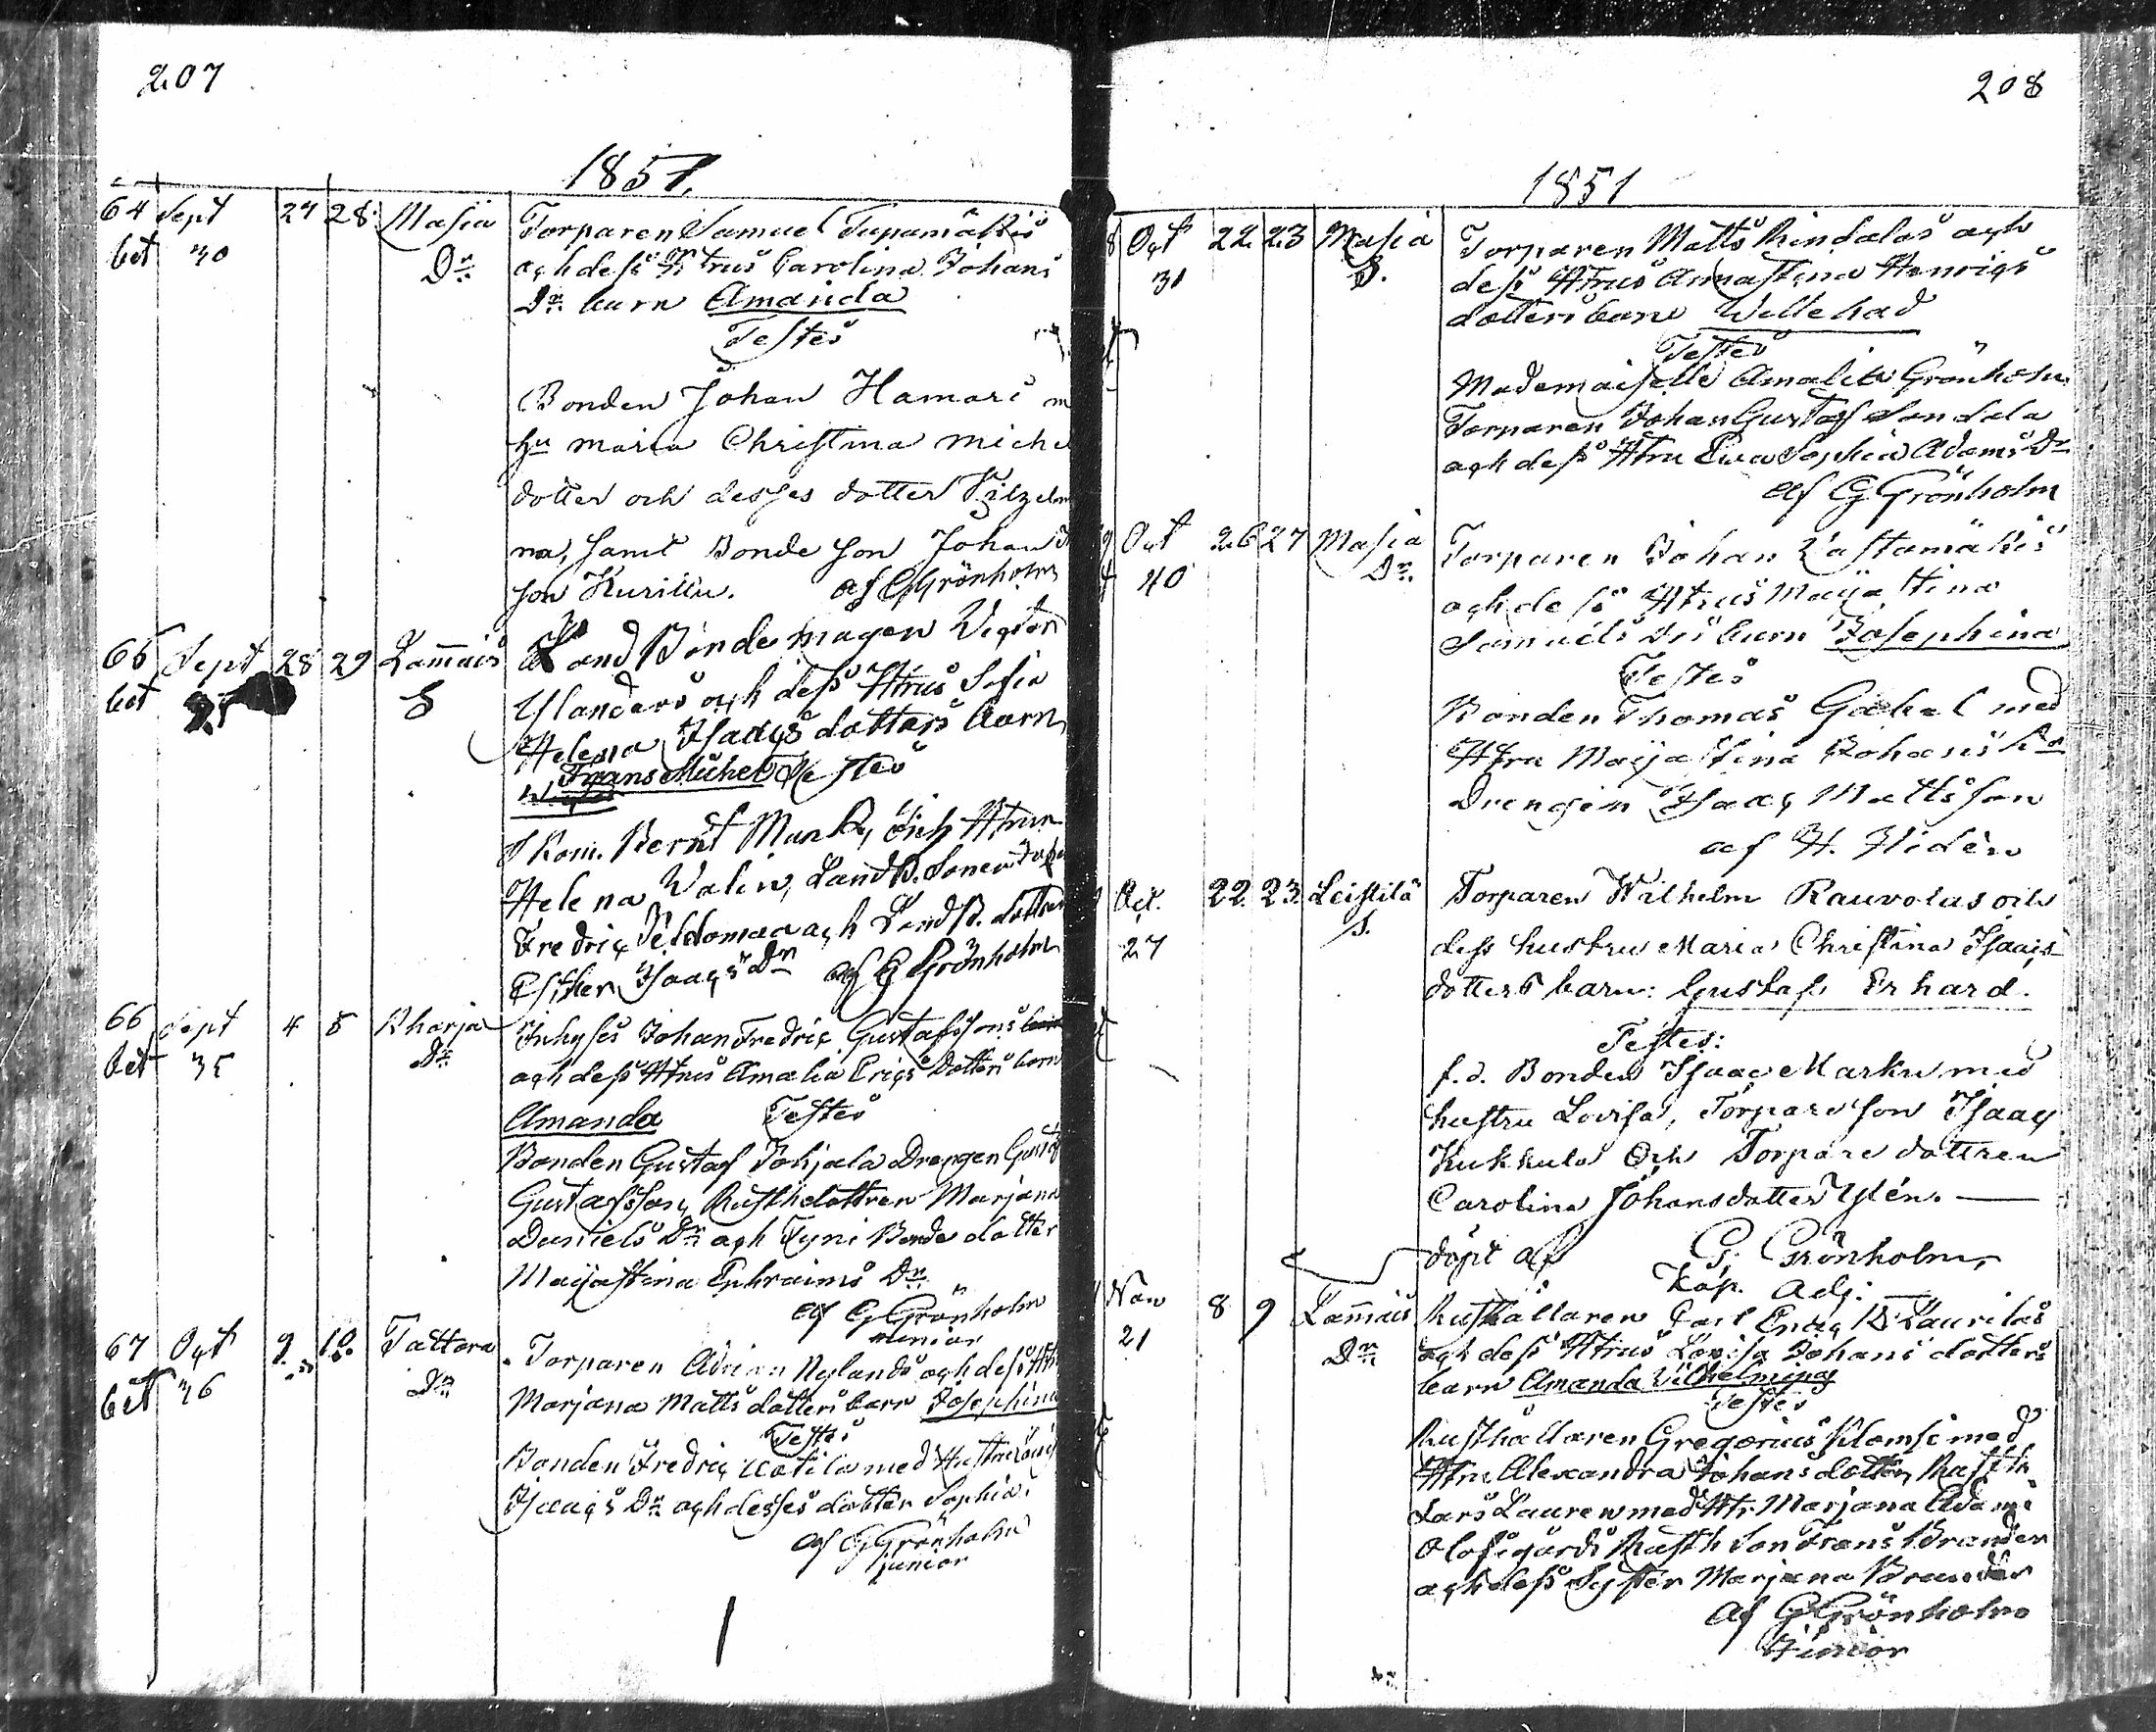 207
1851.
64 Sept 27 28 Masia Torparen Samuel Tupamäkis
bet 30 Dr och dess Hstrus Carolina Johans
Dr barn Amanda
Testes
Bonden Johan Hamari m
hu maria Christina Miche
dotter och desses dotter
na, samt Bonde son Johan
son Kurillu. af G Grönholm
65 Sept 28 29 Lammais Land Bonde magen Victor
bet S Ylanders och dess Hstrus Sofia
Helena Isaacs dotters barn
Frans Michel Testes
Skom. Bernt Munk, och Hstrun
Helena Valin, Landb. Sonen
Fredric Peldomaa och Landb. dottren
Esther Isaacs Dr af G Grönholm
66 Sept 4 5 Kharja Inhyses Johan Fredric Gustafssons
bet 35 Dr och dess Hstrus Amalia Erics dotters barn
Amanda Testes
Bonden Gustaf Pohjala Drengen Gustaf
Gustafsson, Rusth dottren Marjana
Daniels Dr och Tyni Bonde dotter
Majastina Ephraims Dr
af G Grönholm
junior
67 Oct 9 10 Tattara Torparen Adrian Nylands och dess Hst
bet 36 Dr Marjana Matts dotters barn Josephina
Testes
Bonden Fredric Uotila med Hustru
Isaacs Dr och desses dotter Sophia.
af G Grönholm
junior
208
1851
8 Oct 22 23 Masia Torparen Matts Rindalas och
31 S. dess Hstrus Annastina Henrics
dotters barn Willehad
Testes
Mademoiselle Amalia Grönholm
Torparen Johan Gustaf Sandela
och dess Hstru Eva Sophia Adams Dr
af G Grönholm
9 Oct 26 27 Masia Torparen Johan Wastamäkis
40 Dr. och dess Hstrus Maija Stina
Samuels Drs barn Josephina
Testes
Bonden Thomas Gabel med
Hstru Maijastina Johans Dr
Drengen Isaac Mattsson
af H. Hidén
Oct. 22. 23. Leistilä Torparen Wilhelm Rauvolas och
27 S. dess hustru Maria Christina Isaacs
dotters barn: Gustaf Erhard.
Testes:
f.d. Bonden Isaac Marku med
hustru Lovisa, Torpare son Isaac
Kukkula och Torpare dottren
Carolina Johansdotter Ylén.
döpt af G. Grönholm,
Kap. Adj.
Nov 8 9 Lammais Rusthållaren Carl Eric K: Laurilas
21 Dr och dess Hstrus Lovisa Johans dotters
barn Amanda Vilhelmina
Testes
Rusthållaren Gregorius Klemsi med
Hstru Alexandra Johans dotter, Rusth
Lars Lauren med Hst. Marjana Adami
Olofsgårds Rusth Son Frans Brander
och dess Syster Marjana Brander
af G Grönholm
Junior